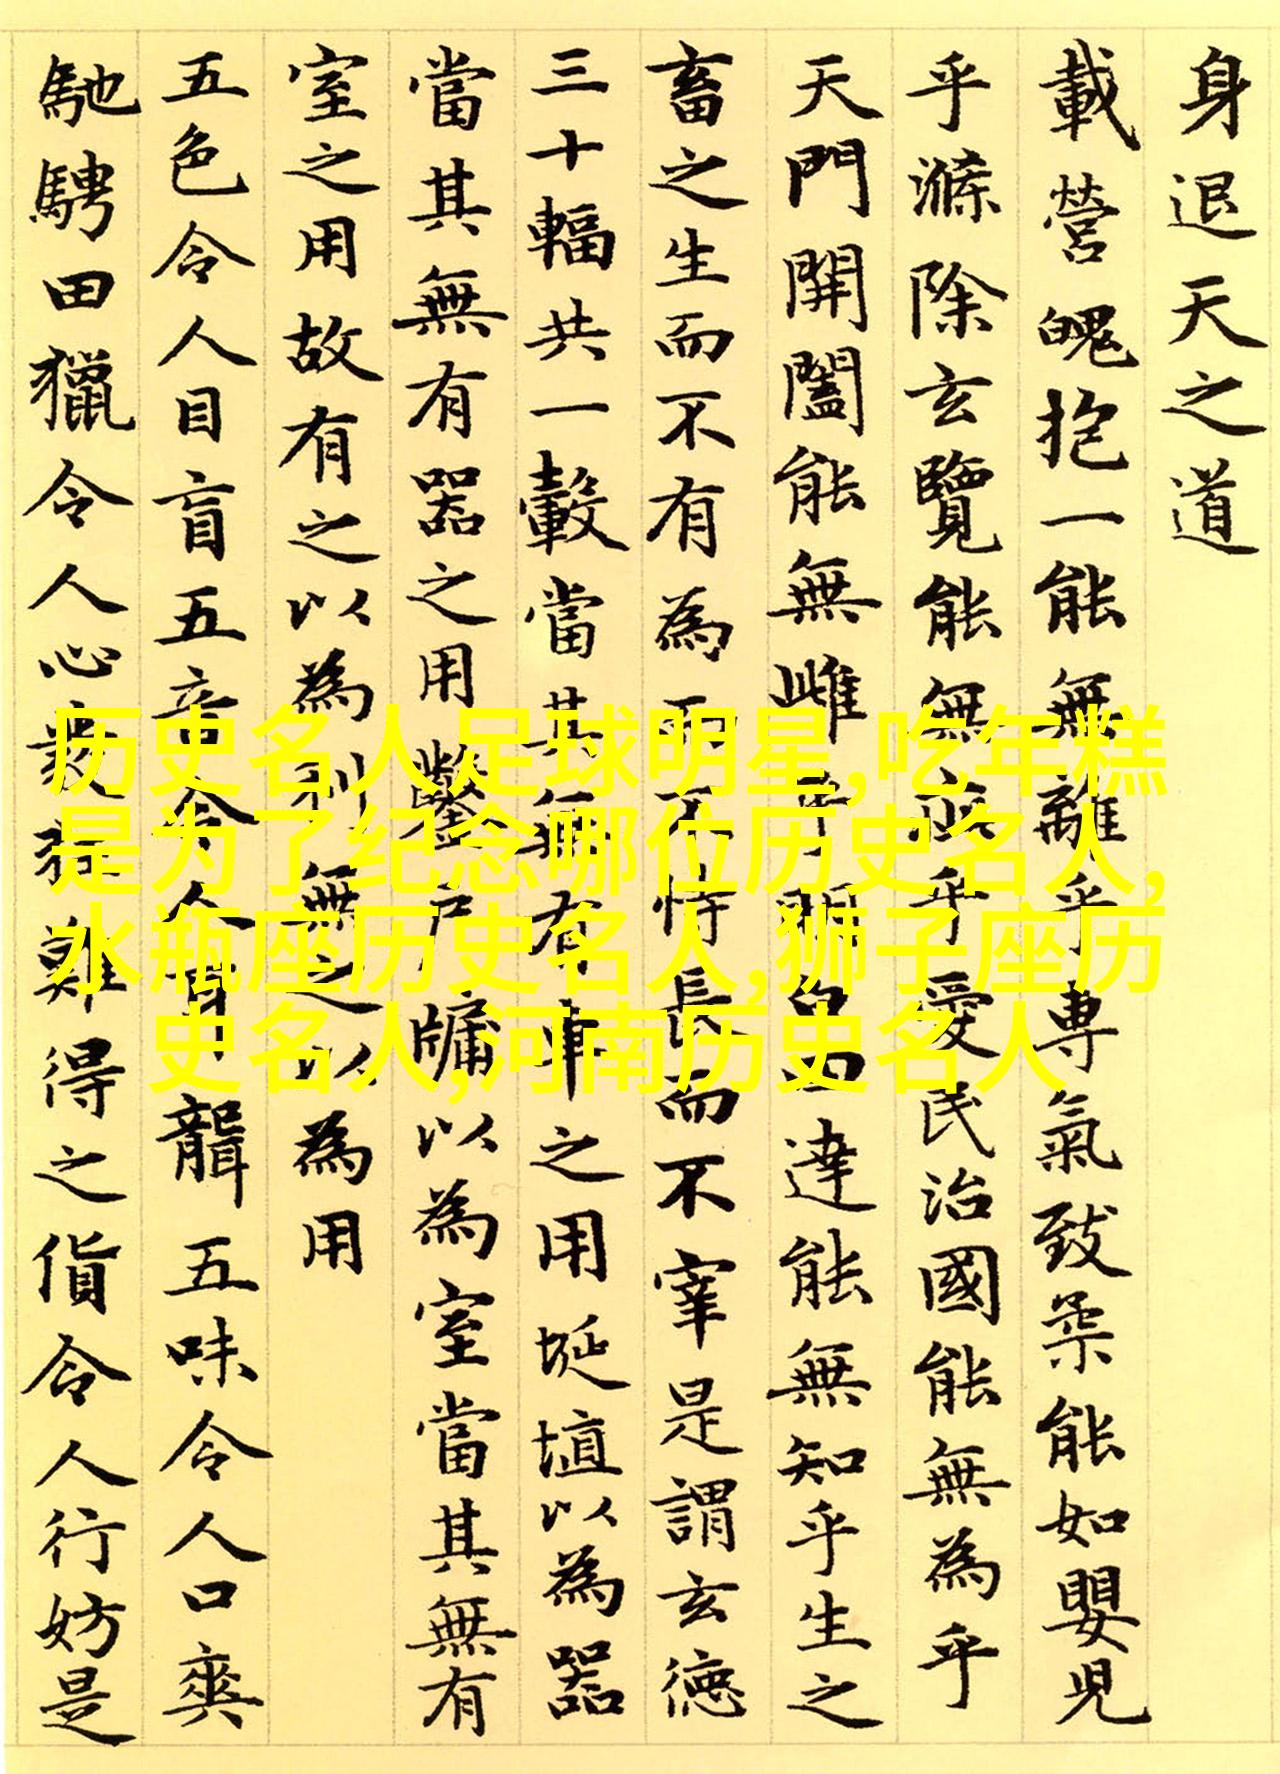 身退天之道
載營魄抱一能無離乎專氣致柔能如嬰兒
乎滌除玄覽能無疵乎愛民治國能無為乎
天門開闔能無雌乎明白四達能無知乎生之
畜之生而不有為而不恃長而不宰是謂玄德
三十輻共一轂當其無有車之用埏埴以為器
當其無有器之用鑿戶牖以為室當其無有
室之用故有之以為利無之以為用
五色令人目盲五音令人耳聾五味令人口爽
馳騁田獵令人心發狂難得之貨令人行妨是
历史名人足球明星,吃年糕
是为了纪念哪位历史名人,
水瓶座历史名人,狮子座历
史名人,河南历史名人